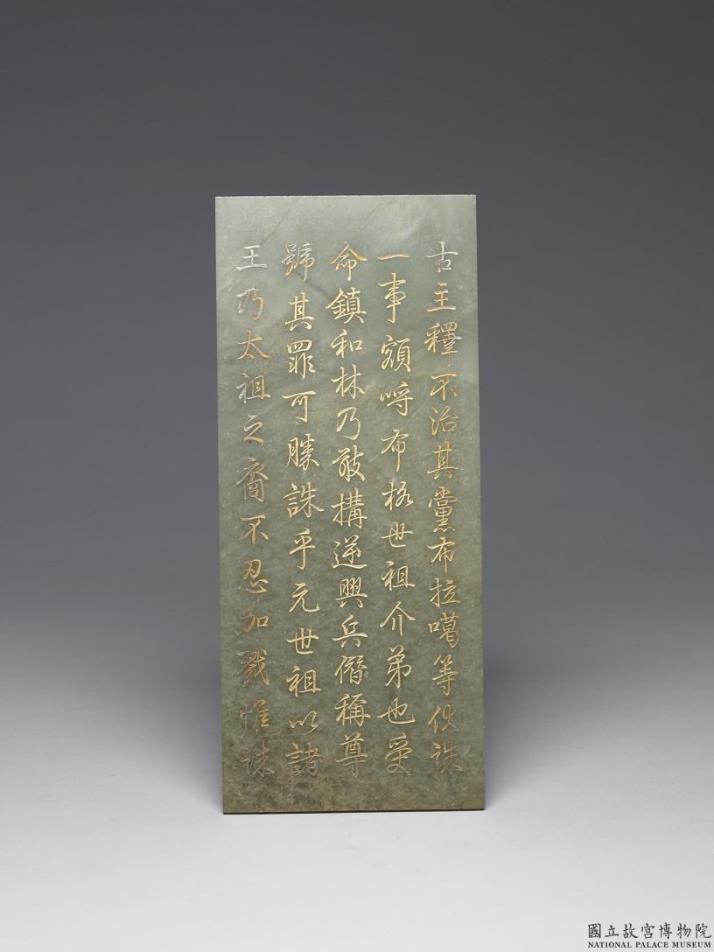 古主釋不治其黨布拉噶等伏誅
一事額呼布格世祖介弟也受
命鎮和林乃敢搆逆興兵僭稱尊
號其罪可勝誅乎元世祖以諸
王乃太祖之裔不忍加戮惟誅
國立故宮博物院
NATIONAL PALACE MUSEUM